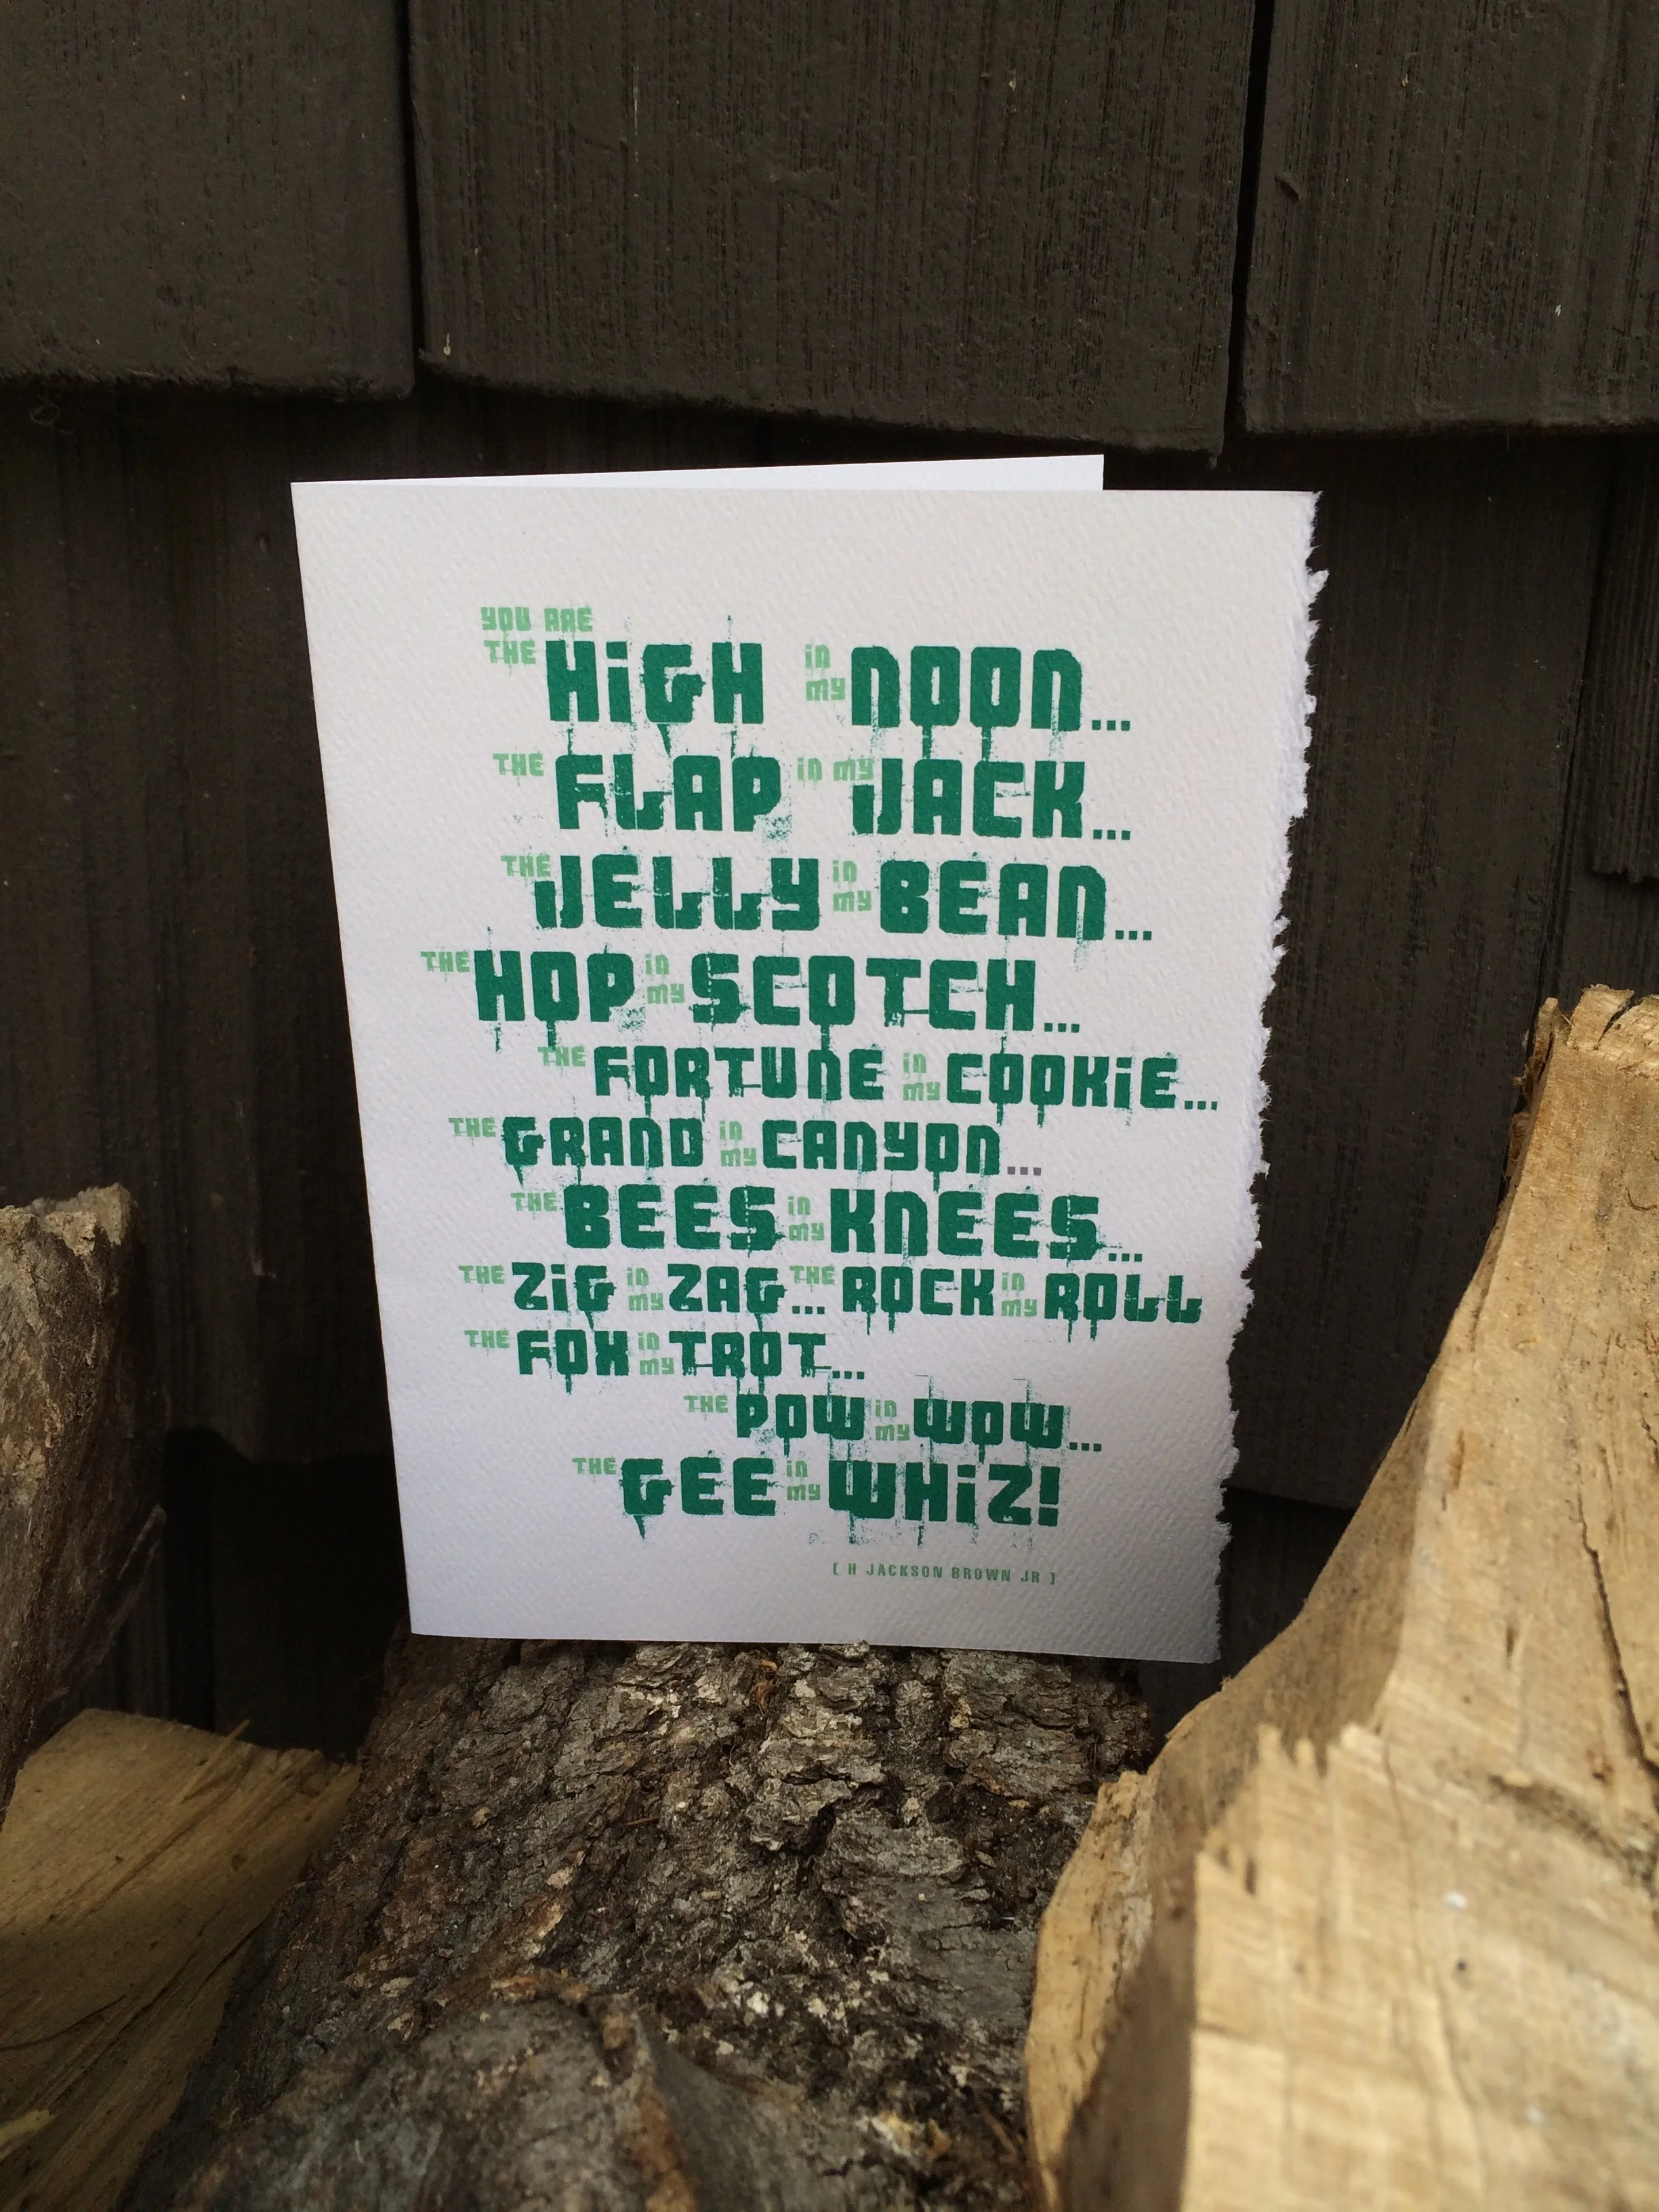 YOU ARE
THE HiGH in my NOON...
THE FLAP in my JACK...
THE JELLY in my BEAN...
THE HOP in my SCOTCH...
THE FORTUNE in my COOKiE...
THE GRAND in my CANYON...
THE BEES in my KNEES...
THE ZiG in my ZAG... THE ROCK in my ROLL
THE FOX in my TROT...
THE POW in my WOW...
THE GEE in my WHiZ!
[ H JACKSON BROWN JR ]